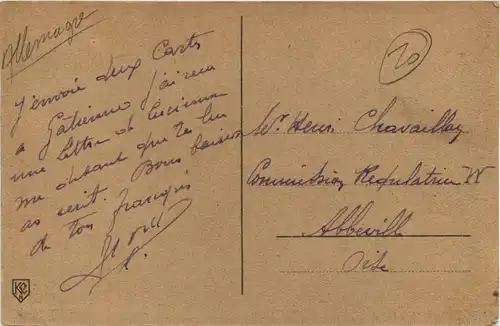 Allemagne
20
J'envoie deux Carts
a Gatienne j'ai reçu
une lettre de Lucienne
me disant que tu lui
as ecrit. Bons baisers
de ton françois
Mr. Henri Chavaillay
Commission Regulatrice W
Abbevill
Oise